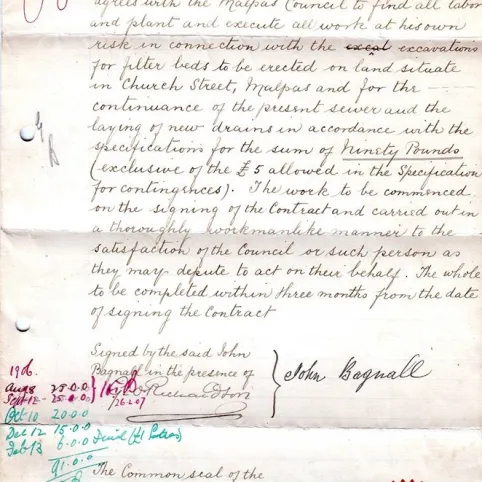 agrees with the Malpas Council to find all labor
and plant and execute all work at his own
risk in connection with the excat excavations
for filter beds to be erected on land situate
in Church Street, Malpas and for the
continuance of the present sewer and the
laying of new drains in accordance with the
specifications for the sum of Ninety Pounds
(exclusive of the £5 allowed in the Specification
for continginces). The work to be commenced
on the signing of the Contract and carried out in
a thoroughly workmanlike manner to the
satisfaction of the Council or such person as
they may depute to act on their behalf. The whole
to be completed within three months from the date
of signing the Contract
Signed by the said John
Bagnall in the presence of
Richardson
John Bagnall
1906.
Aug 8 25.0.0
Sept 12 25.0.0
Oct 10 20.0.0
Dec 12 15.0.0
Feb 13 6.0.0 Final
91.0.0
The Common seal of the